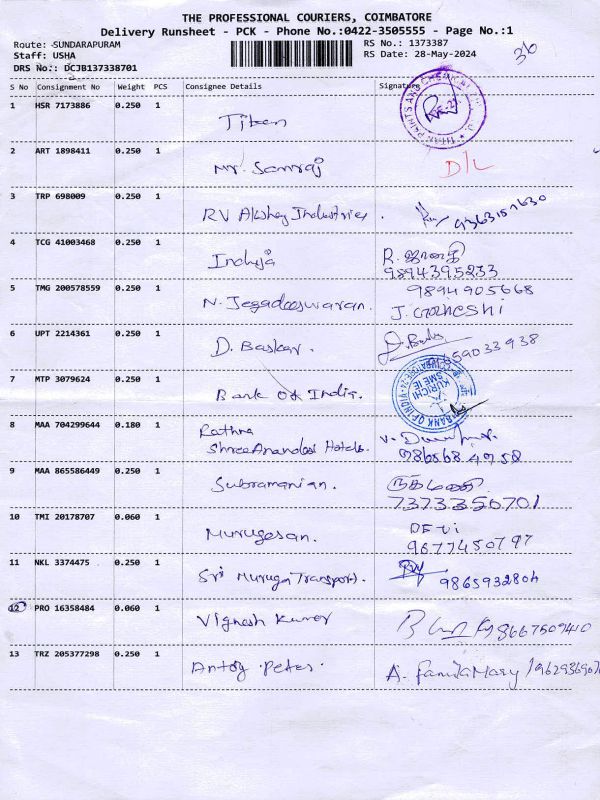 THE PROFESSIONAL COURIERS, COIMBATORE
Delivery Runsheet - PCK - Phone No.:0422-3505555 - Page No.:1
Route: -SUNDARAPURAM
Staff: USHA
DRS No.: DCJB137338701
RS No.: 1373387
RS Date: 28-May-2024
S No Consignment No Weight PCS Consignee Details Signature
1 HSR 7173886 0.250 1
2 ART 1898411 0.250 1 Mr. Samraj D/L
3 TRP 698009 0.250 1 RV Akshay Industries.
4 TCG 41003468 0.250 1 Induja R. ஜானகி
9894395233
5 TMG 200578559 0.250 1 N. Jegadeeswaran. 9894905668
6 UPT 2214361 0.250 1 D. Baskar.
7 MTP 3079624 0.250 1 Bank Of India. BANK OF INDIA KURICHI SME
8 MAA 704299644 0.180 1 Rathna
Shree Anandas Hotels.
9 MAA 865586449 0.250 1 Subramanian.
7373350701
10 TMI 20178707 0.060 1 Murugesan.
9677450797
11 NKL 3374475 0.250 1 Sri Muruga Transport. 9865932804
12 PRO 16358484 0.060 1 Vignesh Kumar 8667509410
13 TRZ 205377298 0.250 1 Antog Peter. A. Famila Mary